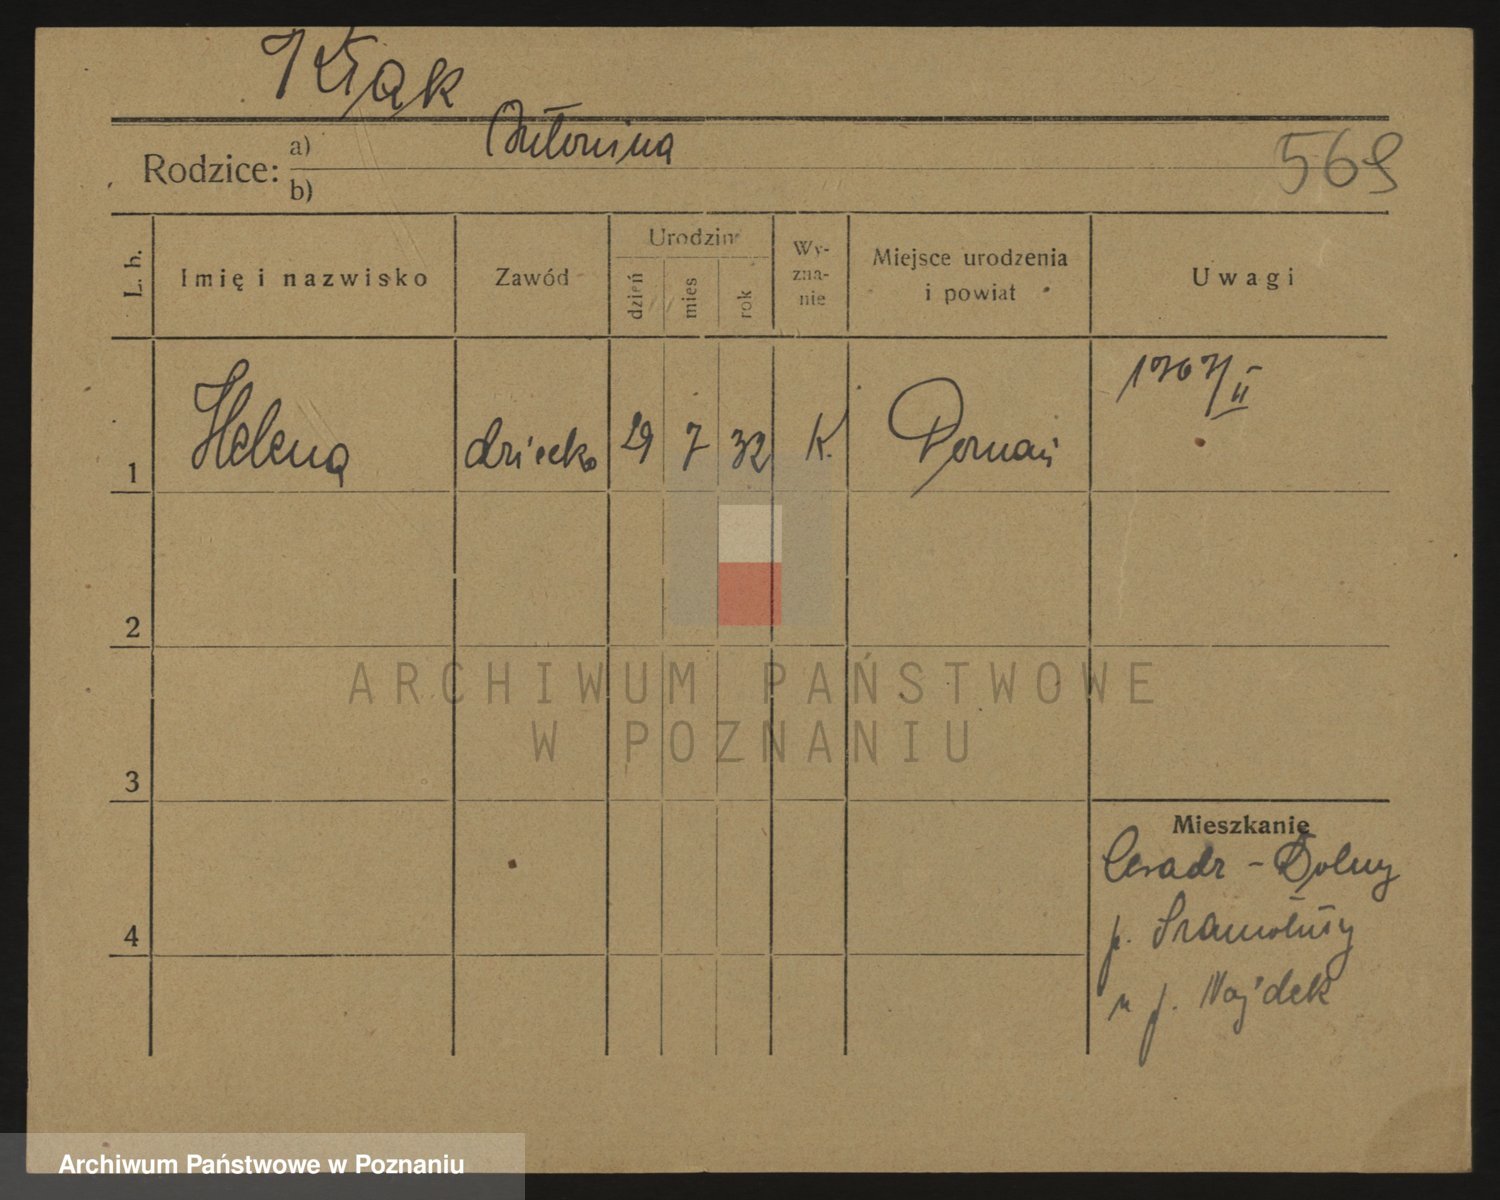 Kłąk
Rodzice: a) Antonina
b)
569
L. b.
Imię i nazwisko
Zawód
Urodzin
dzień
mies
rok
Wy-
zna-
nie
Miejsce urodzenia
i powiat
Uwagi
1 Helena dziecko 29 7 32 K. Poznań 1767/II
2
3
4
Mieszkanie
Ceradz - Dolny
p. Szamotuły
u p. Wojdek
ARCHIWUM PAŃSTWOWE
W POZNANIU
Archiwum Państwowe w Poznaniu